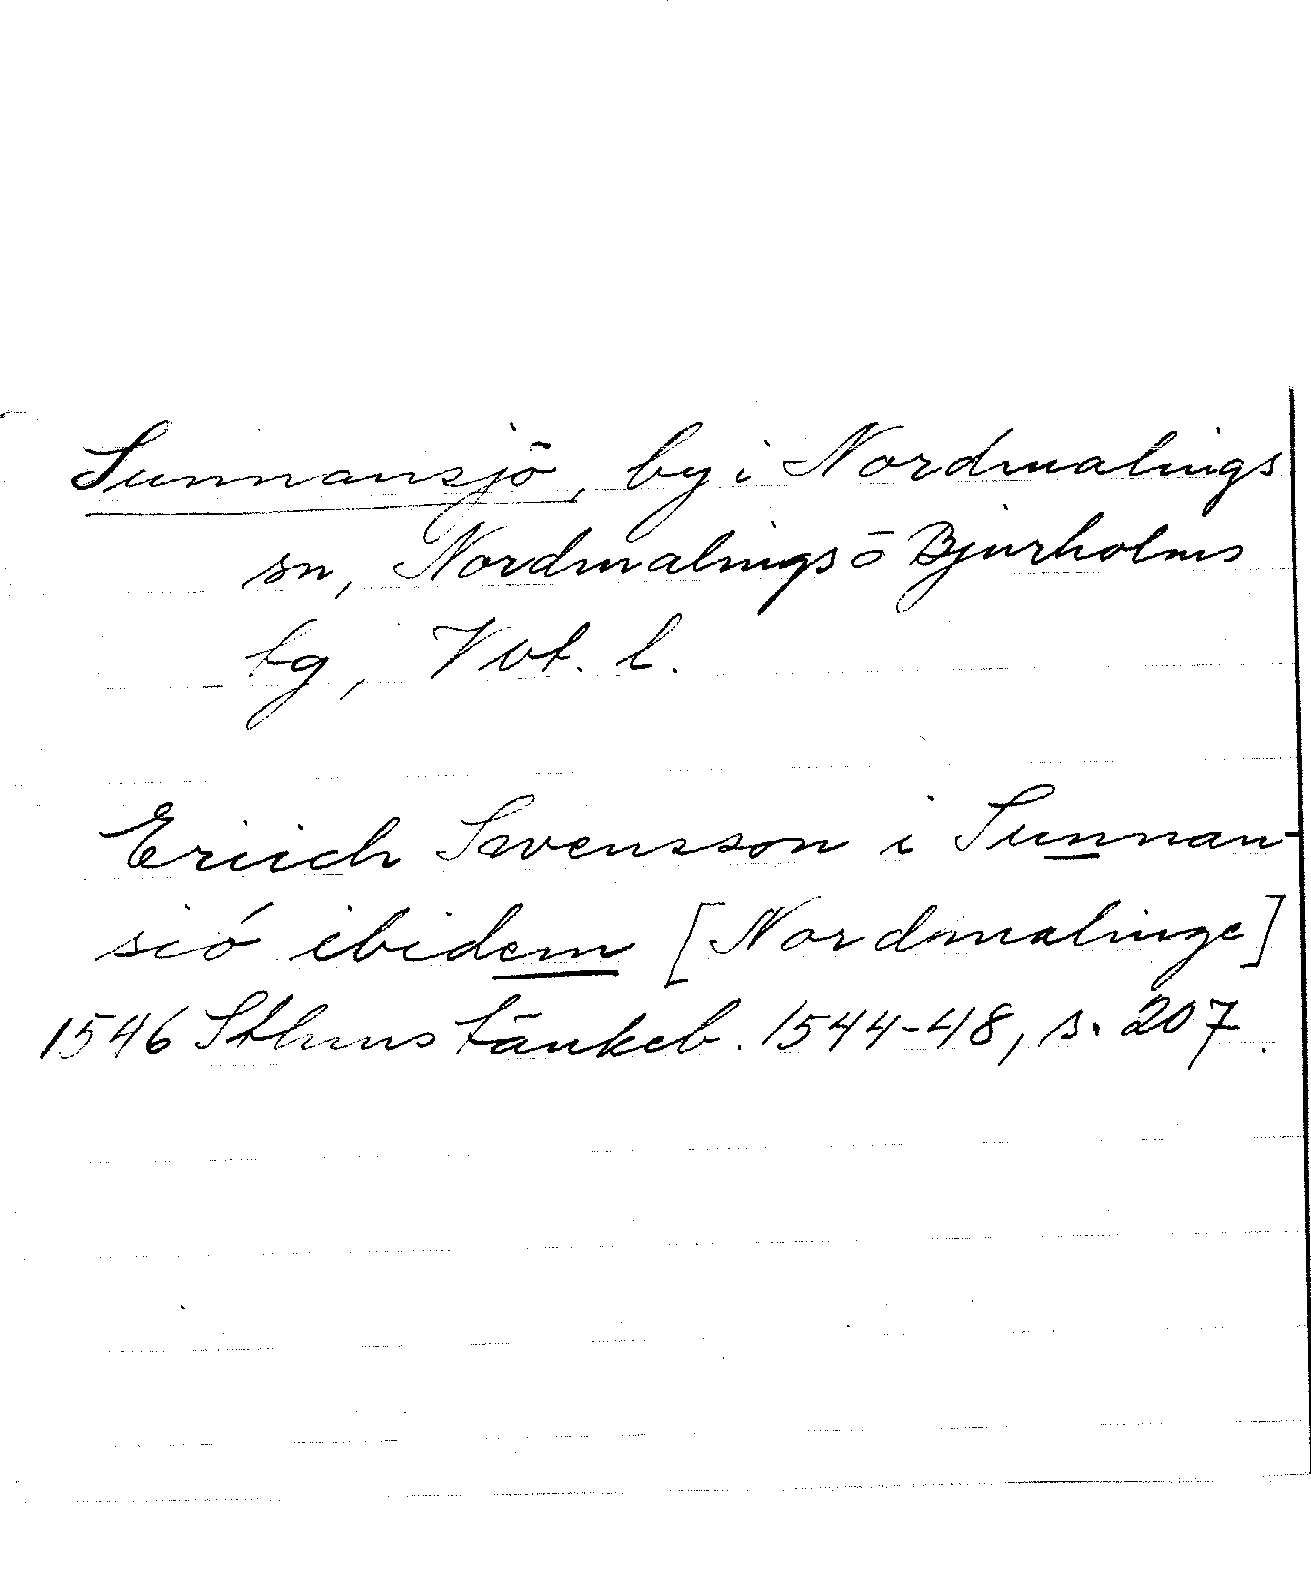 Sunnansjö, by i Nordmalings
sn, Nordmalings o Bjurholms
tg, Vbt. l.
Eriich Swensson i Sunnan-
sió ibidem [Nordmalinge]
1546 Sthms tänkeb. 1544-48, s. 207.